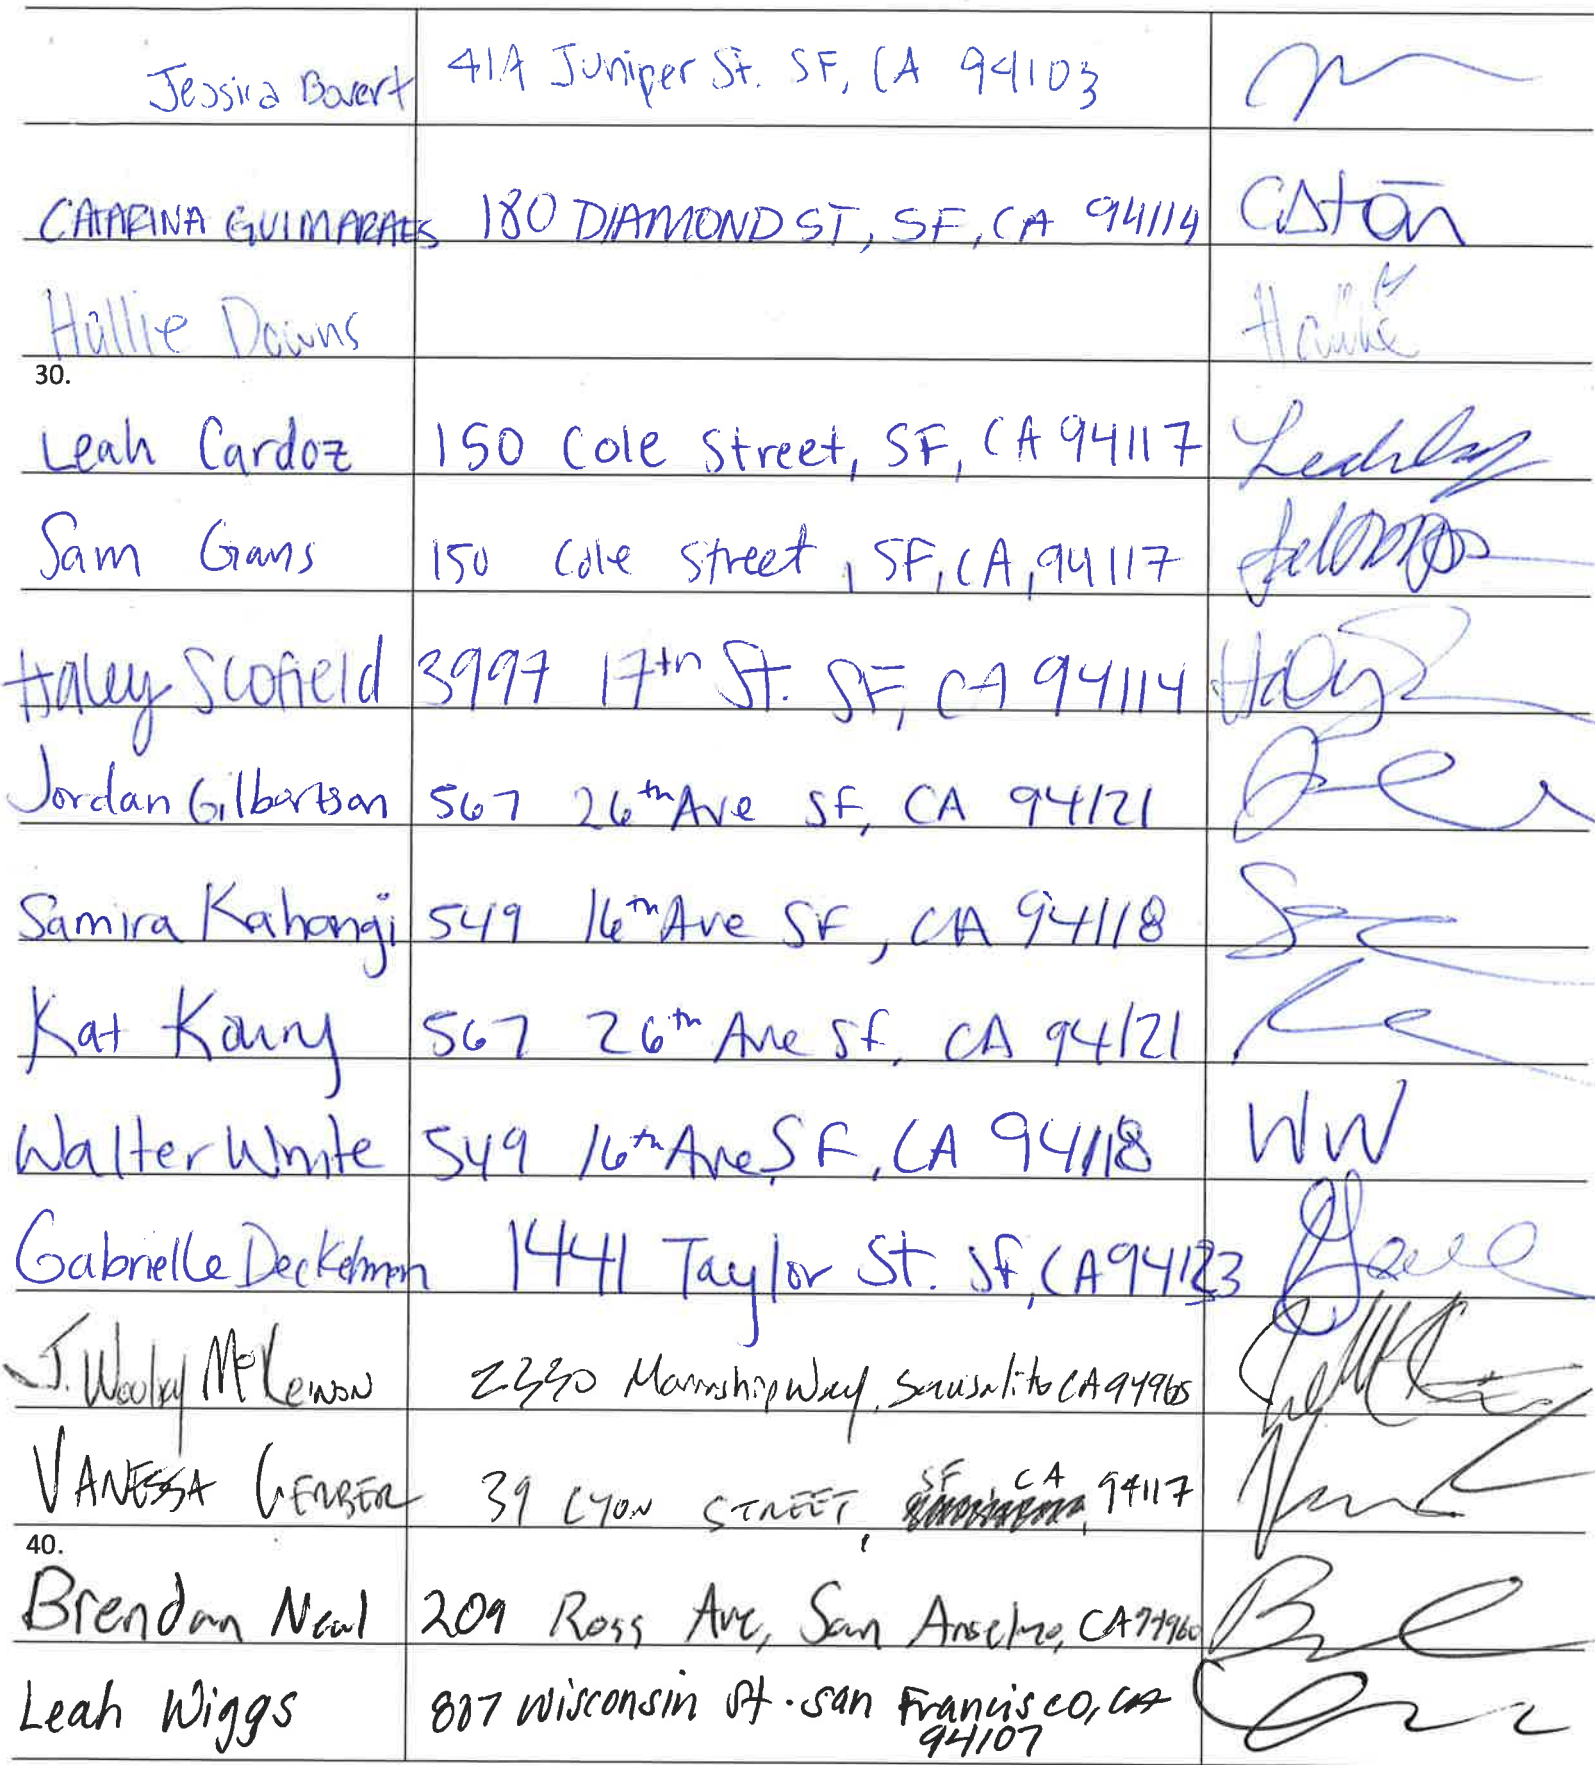 Jessica Bovert 41A Juniper St. SF, CA 94103
CATARINA GUIMARAES 180 DIAMOND ST, SF, CA 94114
Hallie Downs
30.
Leah Cardoz 150 Cole Street, SF, CA 94117
Sam Gans 150 Cole Street, SF, CA, 94117
Haley Scofield 3997 17th St. SF, CA 94114
Jordan Gilbertson 567 26th Ave SF, CA 94121
Samira Kahangi 549 16th Ave SF, CA 94118
Kat Koury 567 26th Ave SF, CA 94121
Walter White 549 16th Ave, SF, CA 94118 WW
Gabrielle Deckelman 1441 Taylor St. SF, CA 94123
J. 2330 Marinship Way, Sausalito CA 94965
VANESSA GERBER 39 LYON STREET, SF, CA, 94117
40.
Brendan Neal 209 Ross Ave, San Anselmo, CA 94960
Leah Wiggs 807 Wisconsin St. San Francisco, CA
94107